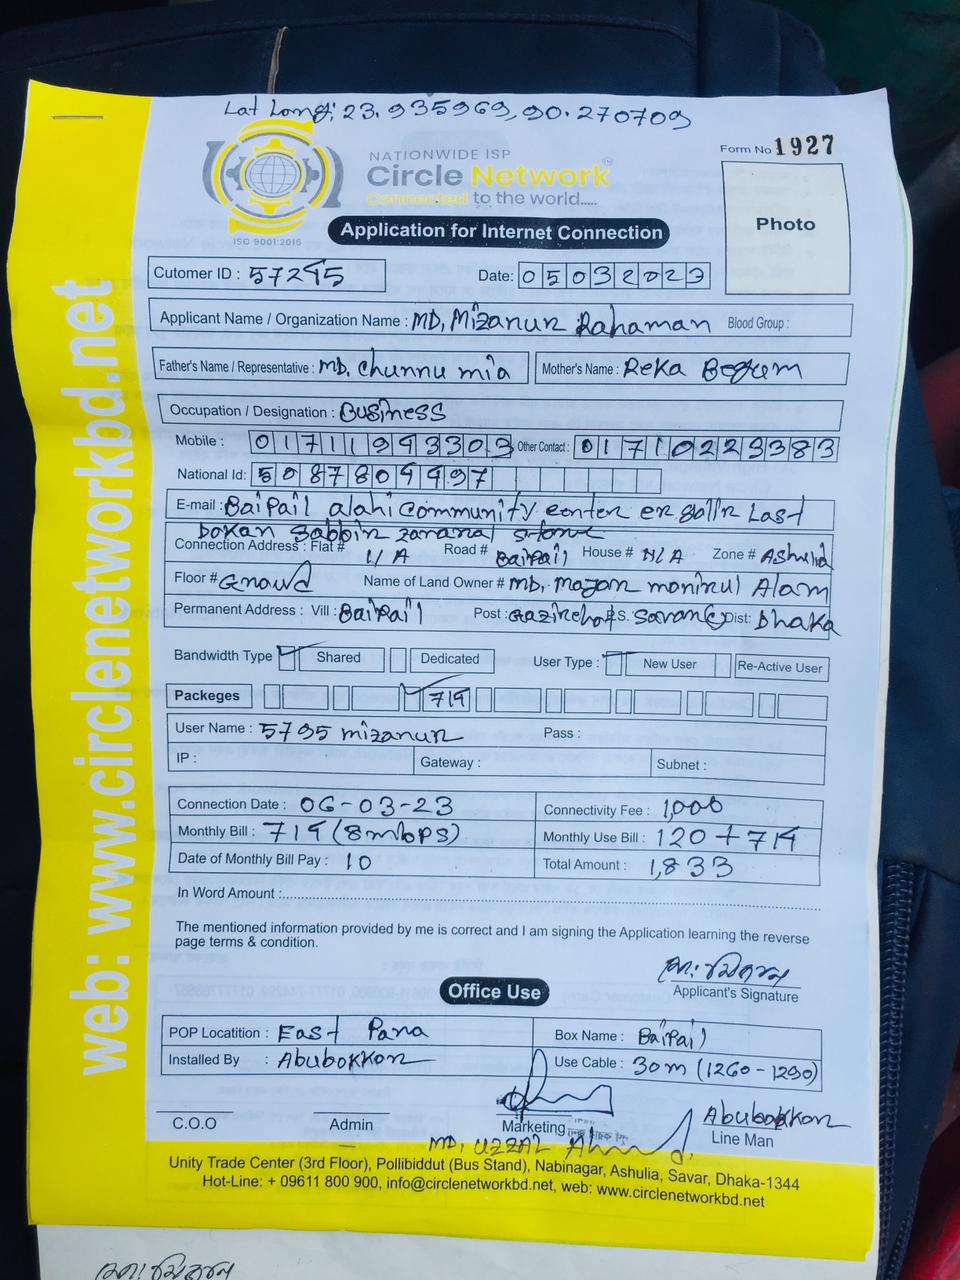 Lat Long: 23.935969, 90.270709
Form No 1927
NATIONWIDE ISP
Circle Network
Connected to the world.....
ISO 9001:2015
Photo
Application for Internet Connection
Cutomer ID : 57295
Date: 05032023
Applicant Name / Organization Name : MD, Mizanur Rahaman Blood Group :
Father's Name / Representative : MD. Chunnu mia Mother's Name : Reka Begum
Occupation / Designation : Business
Mobile : 01711993303 Other Contact : 01710229383
National Id: 5087809997
E-mail : Baipail alahi community center er goli'r Last
Dokan
Connection Address : Flat # N/A Road # Baipail House # N/A Zone # Ashulia
Floor # Name of Land Owner # MD. monirul Alam
Permanent Address : Vill : Baipail Post : P.S. Dist: Dhaka
Bandwidth Type Shared Dedicated User Type : New User Re-Active User
Packeges 719
User Name : 5795 mizanur Pass :
IP : Gateway : Subnet :
Connection Date : 06-03-23 Connectivity Fee : 1,000
Monthly Bill : 719 (8mbps) Monthly Use Bill : 120 + 719
Date of Monthly Bill Pay : 10 Total Amount : 1,833
In Word Amount :
The mentioned information provided by me is correct and I am signing the Application learning the reverse
page terms & condition.
Applicant's Signature
Office Use
POP Locatition : East Para Box Name : Baipail
Installed By : Abubokkor Use Cable : 30m (1260-1290)
Abubokkor
C.O.O Admin Marketing Line Man
MD, UZZAL
Unity Trade Center (3rd Floor), Pollibiddut (Bus Stand), Nabinagar, Ashulia, Savar, Dhaka-1344
Hot-Line: + 09611 800 900, info@circlenetworkbd.net, web: www.circlenetworkbd.net
web: www.circlenetworkbd.net